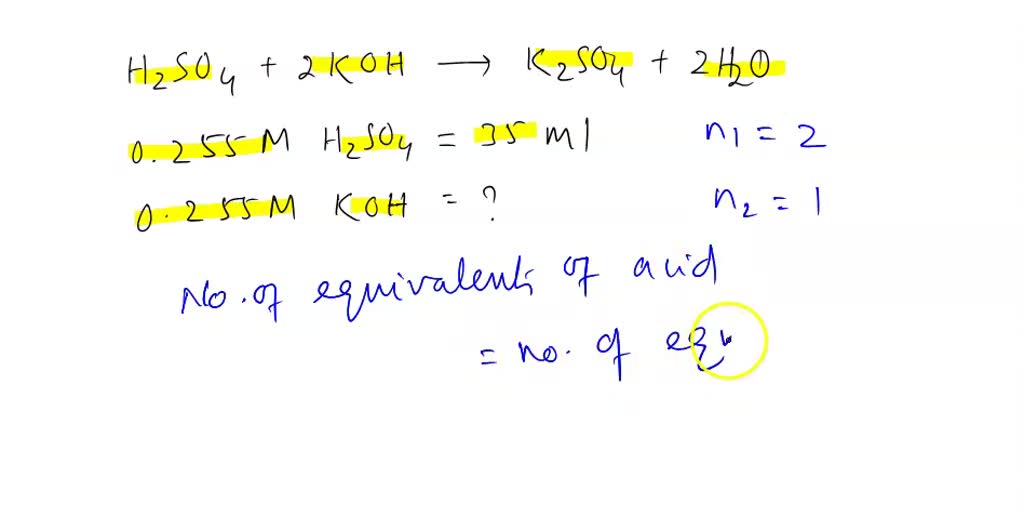 H₂SO₄ + 2KOH → K₂SO₄ + 2H₂O
0.255M H₂SO₄ = 35 ml n₁ = 2
0.255M KOH = ? n₂ = 1
No. of equivalents of acid
= no. of eq